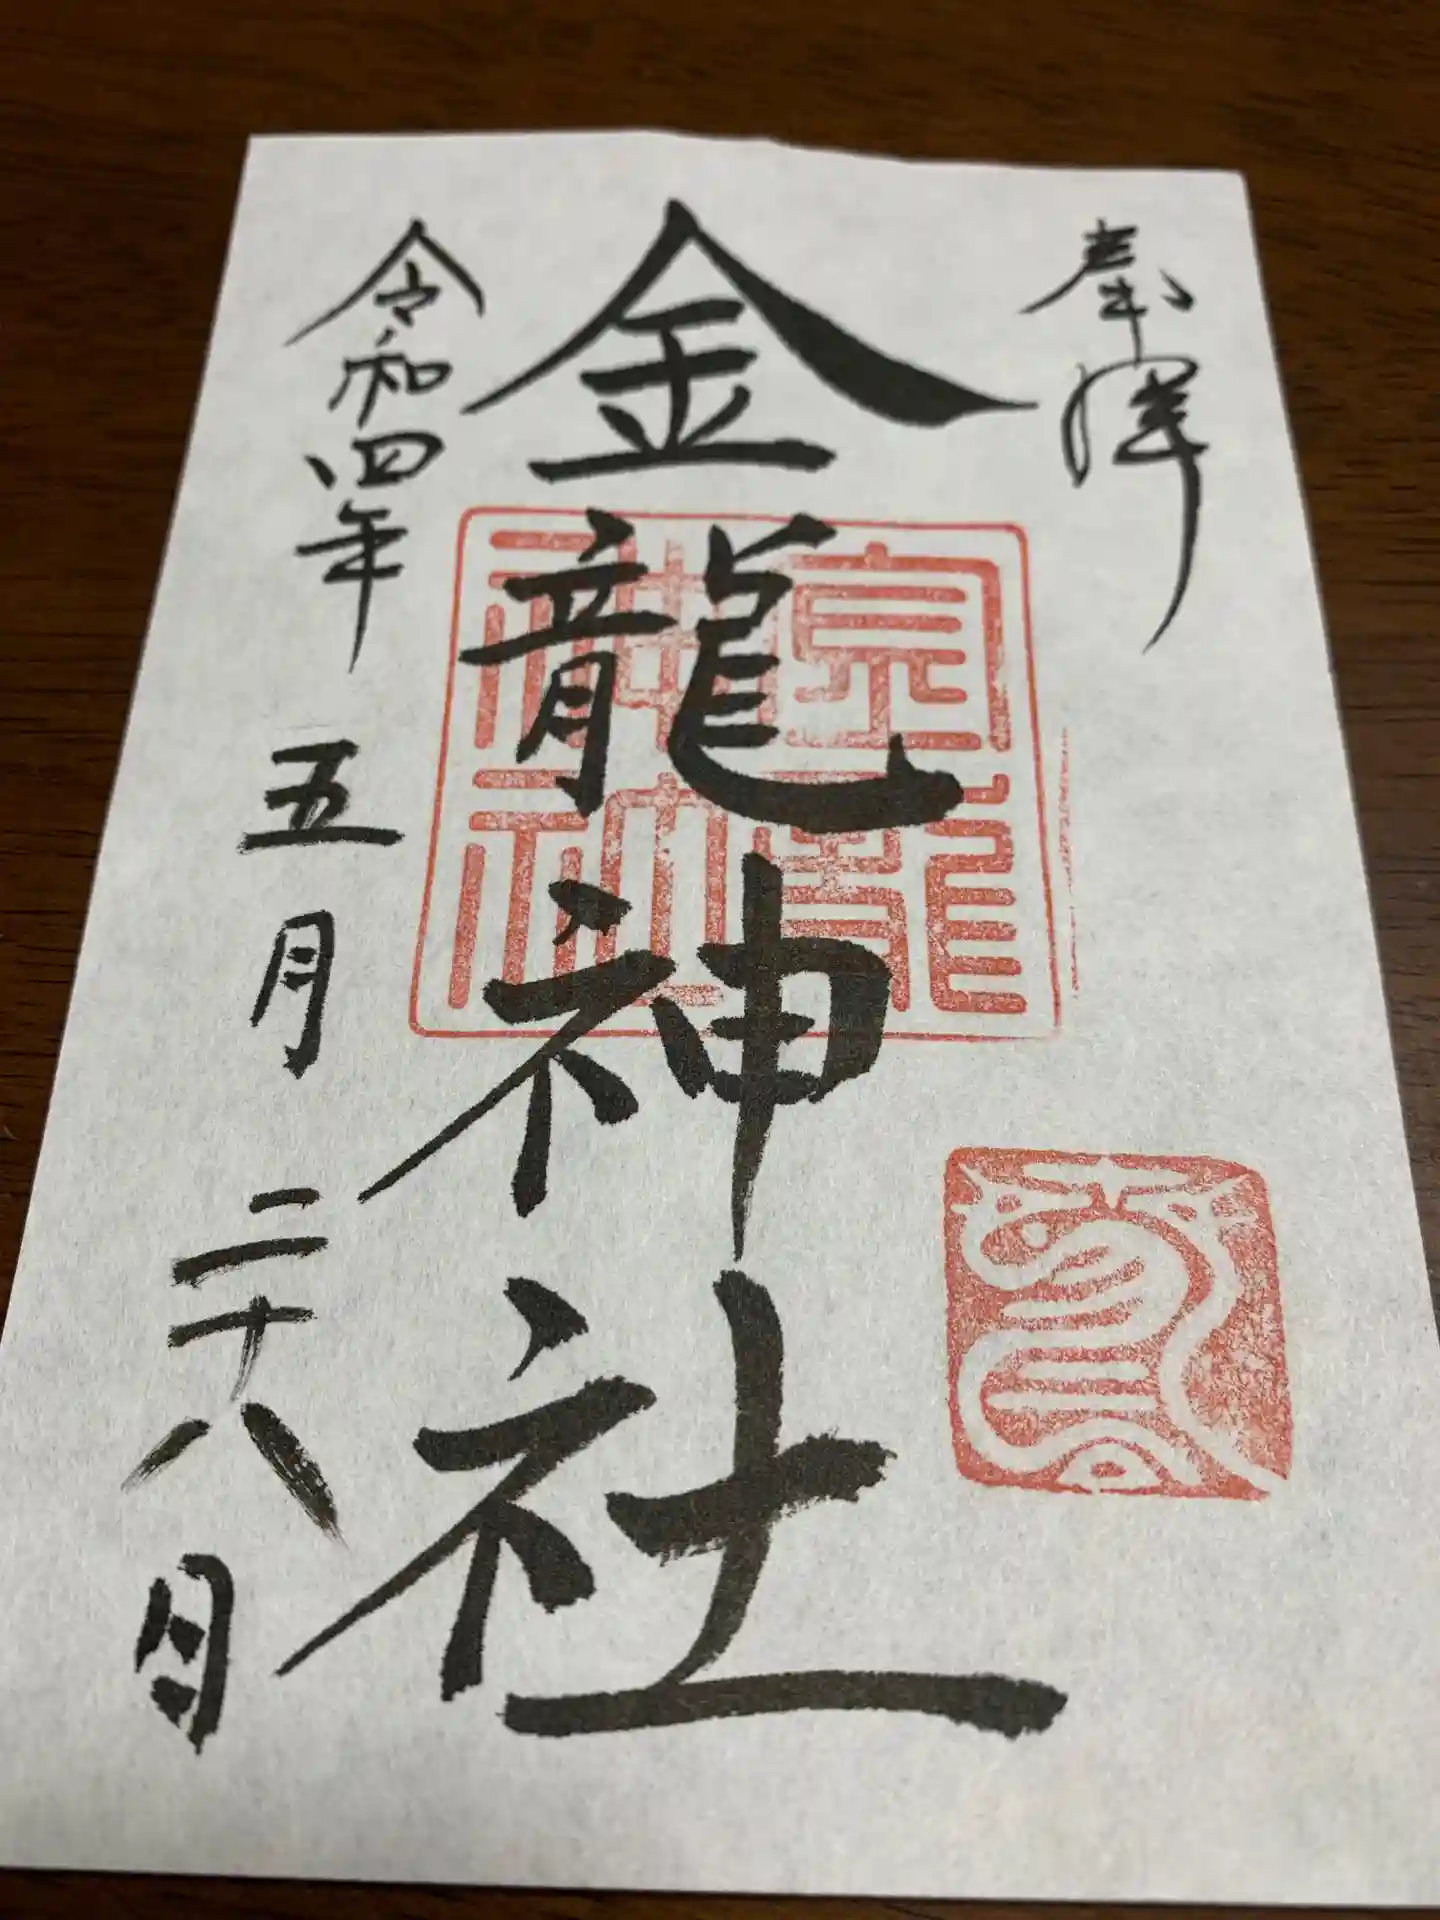 奉拝
金龍神社
令和四年五月二十八日
金龍
神社